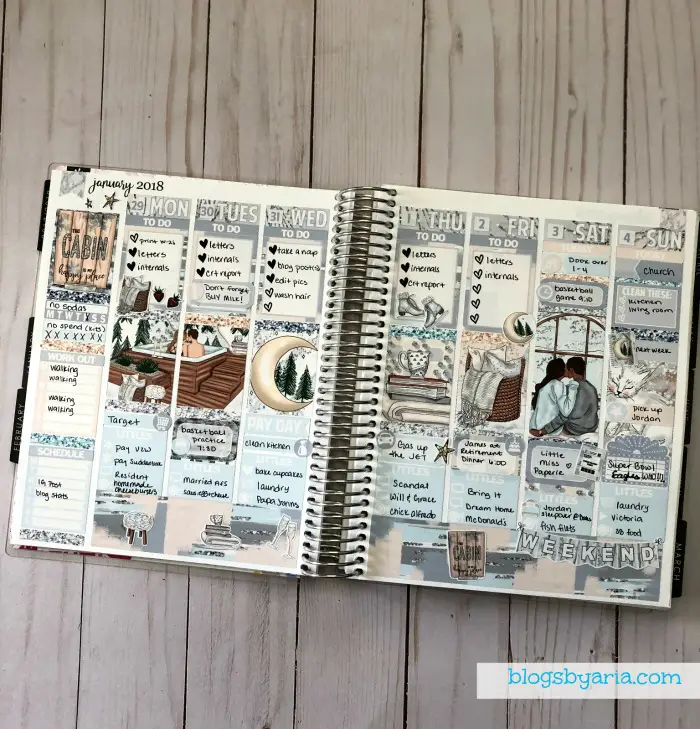 january 2018
THE
CABIN
is my
happy place
no sodas
M T W T F S S
no spend (kits)
X X X X X X X
WORK OUT
walking
walking
walking
walking
SCHEDULE
IG Post
blog stats
29 MON
TO DO
letters
internals
Target
LITTLES
pay VZW
Resident
homemade
cheeseburgers
30 TUES
TO DO
letters
internals
crt report
Don't forget
BUY MILK!
basketball
practice
7:30
LITTLES
31 WED
TO DO
take a nap
blog post(s)
edit pics
wash hair
PAY DAY
clean kitchen
LITTLES
bake cupcakes
laundry
Papa Johns
1 THU
TO DO
letters
internals
crt report
Gas up
the JET
LITTLES
Scandal
Will & Grace
chick alfredo
2 FRI
TO DO
letters
internals
James
Retirement
Dinner 6:00
LITTLES
Bring It
Dream Home
McDonald's
3 SAT
Door over
1-4
basketball
game 9:10
Little
Miss
Paperie
LITTLES
Jordan
fish filets
4 SUN
church
CLEAN THESE
kitchen
living room
next week
pick up
Jordan
Super Bowl
Eagles
LITTLES
laundry
Victoria
SB food
THE
CABIN
WEEKEND
FEBRUARY
MARCH
blogsbyaria.com